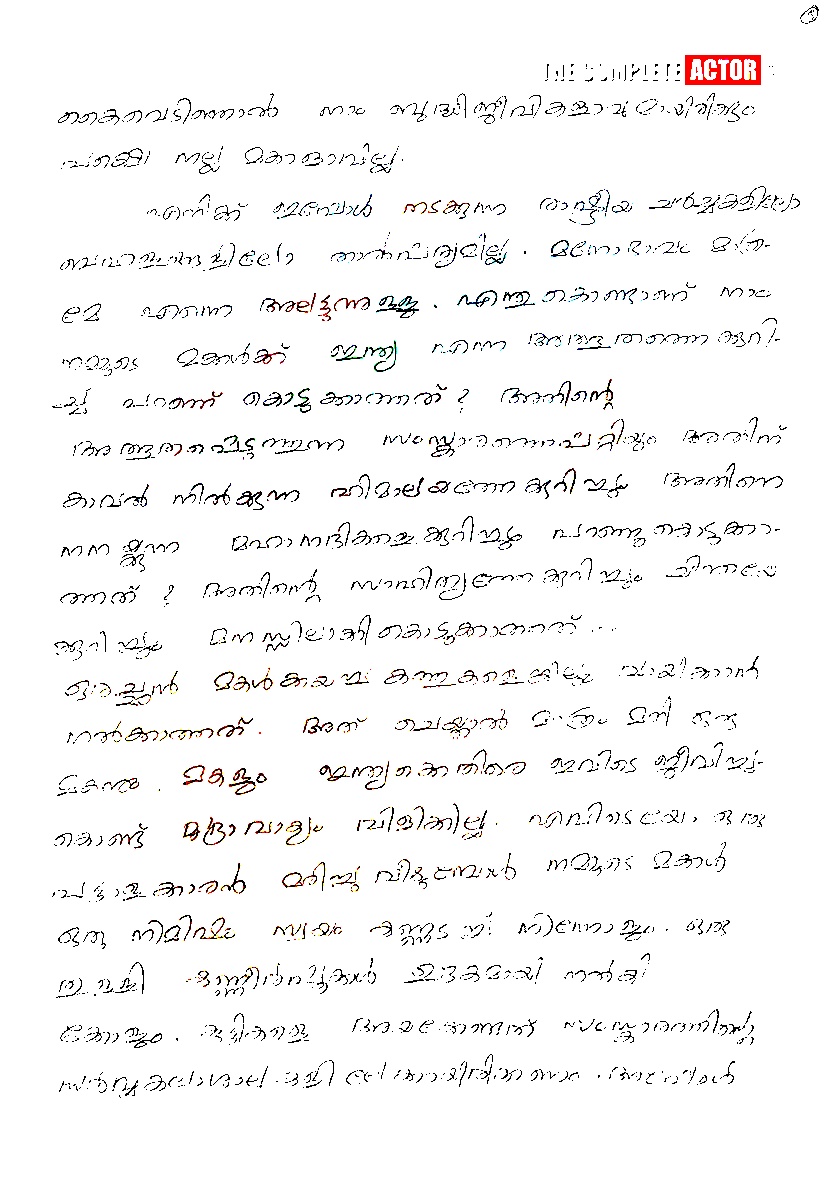 THE COMPLETE ACTOR
കൈവെടിഞ്ഞാൽ നാം ബുദ്ധിജീവികളാവുമായിരിക്കും
പക്ഷെ നല്ല മക്കളാവില്ല.
എനിക്ക് ഇപ്പോൾ നടക്കുന്ന രാഷ്ട്രീയ ചർച്ചകളിലോ
ബഹളങ്ങളിലോ താൽപര്യമില്ല. മനോഭാവം മാത്ര-
മേ എന്നെ അലട്ടുന്നുള്ളു. എന്തുകൊണ്ടാണ് നാം
നമ്മുടെ മക്കൾക്ക് ഇന്ത്യ എന്ന അത്ഭുതത്തെക്കുറി-
ച്ച് പറഞ്ഞ് കൊടുക്കാത്തത്? അതിന്റെ
അത്ഭുതപ്പെടുത്തുന്ന സംസ്കാരത്തെപ്പറ്റിയും അതിന്
കാവൽ നിൽക്കുന്ന ഹിമാലയത്തെക്കുറിച്ചും അതിനെ
നനയ്ക്കുന്ന മഹാനദികളെക്കുറിച്ചും പറഞ്ഞുകൊടുക്കാ-
ത്തത്? അതിന്റെ സാഹിത്യത്തെക്കുറിച്ചും ചിന്തയെ
ക്കുറിച്ചും മനസ്സിലാക്കികൊടുക്കാത്തത്...
ഒരച്ഛൻ മകൾക്കയച്ച കത്തുകളെങ്കിലും വായിക്കാൻ
നൽകാത്തത്. അത് ചെയ്താൽ മാത്രം മതി ഒരു
മകനും. മകളും ഇന്ത്യക്കെതിരെ ഇവിടെ ജീവിച്ചു-
കൊണ്ട് മുദ്രാവാക്യം വിളിക്കില്ല. എവിടെയോ ഒരു
പട്ടാളക്കാരൻ മരിച്ചു വീഴുമ്പോൾ നമ്മുടെ മക്കൾ
ഒരു നിമിഷം സ്വയം കണ്ണടച്ച് നിന്നോളും. ഒരു
തുള്ളി കണ്ണീർപ്പൂക്കൾ ഉദകമായി നൽകി
ക്കോളും. കുട്ടികളെ അയക്കേണ്ടത് സംസ്കാരത്തിന്റെ
സർവ്വകലാശാലകളിലേക്കായിരിക്കണം. അപ്പോൾ